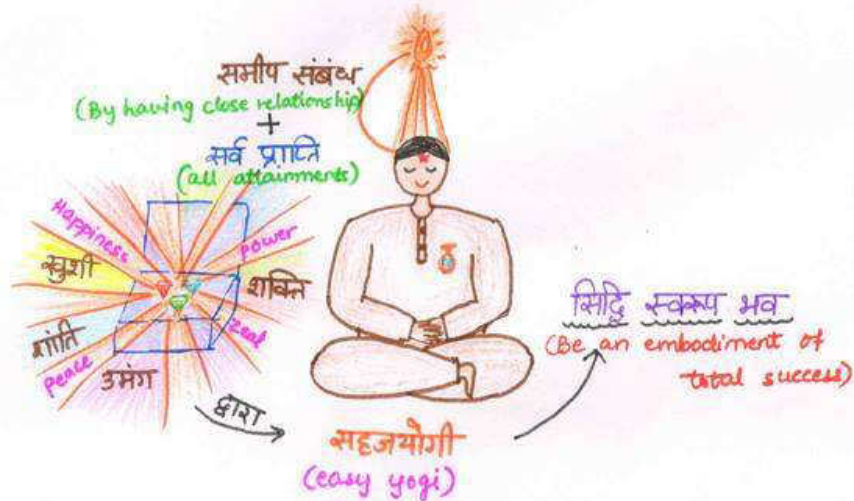 समीप संबंध
(By having close relationship)
+
सर्व प्राप्ति
(all attainments)
Happiness
power
खुशी
शक्ति
शांति
zeal
peace
उमंग
द्वारा
सहजयोगी
(easy yogi)
सिद्धि स्वरूप भव
(Be an embodiment of
total success)